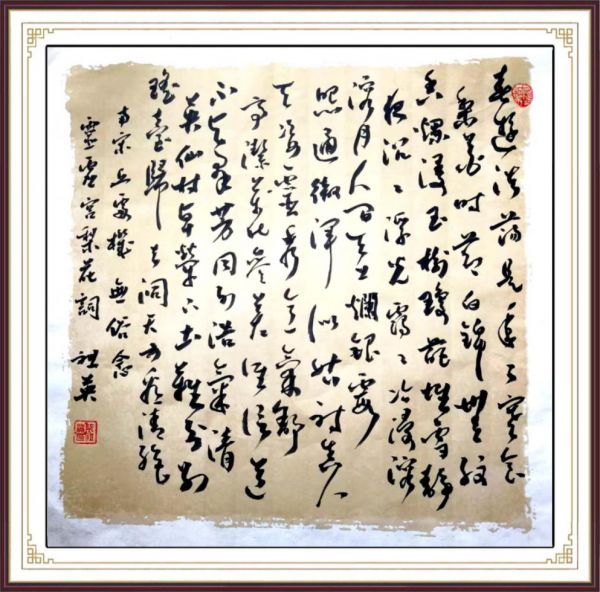 春遊浩蕩是年〻寒食
梨花時節白錦無紋
香爛漫玉樹瓊葩堆雪靜
夜沉〻浮光靄〻冷浸溶
溶月人間天上爛銀霞
照通徹渾似姑射真人
天姿靈秀意氣舒
高潔萬化參差誰信道
不与群芳同列浩氣清
英仙材卓犖下土難分別
瑤臺歸去洞天方看清絕
南宋丘處機 無俗念
靈虛宮梨花詞 祖英